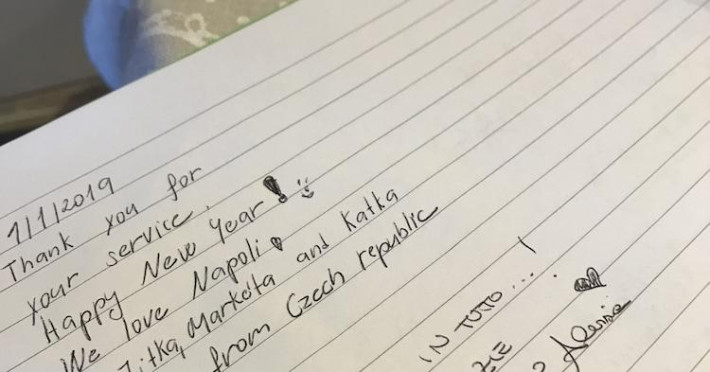 1/1/2019
Thank you for
your service.
Happy New Year!
We love Napoli
Jitka, Markéta and Katka
from Czech republic
IN TUTTO...!